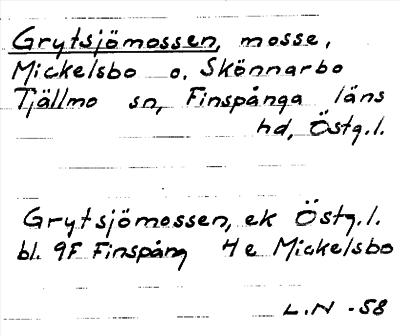 Grytsjömossen, mosse,
Mickelsbo o. Skönnarbo
Tjällmo sn, Finspånga läns
hd, Östg.l.
Grytsjömossen, ek Östg.l.
bl. 9F Finspång 4e Mickelsbo
L.N -58